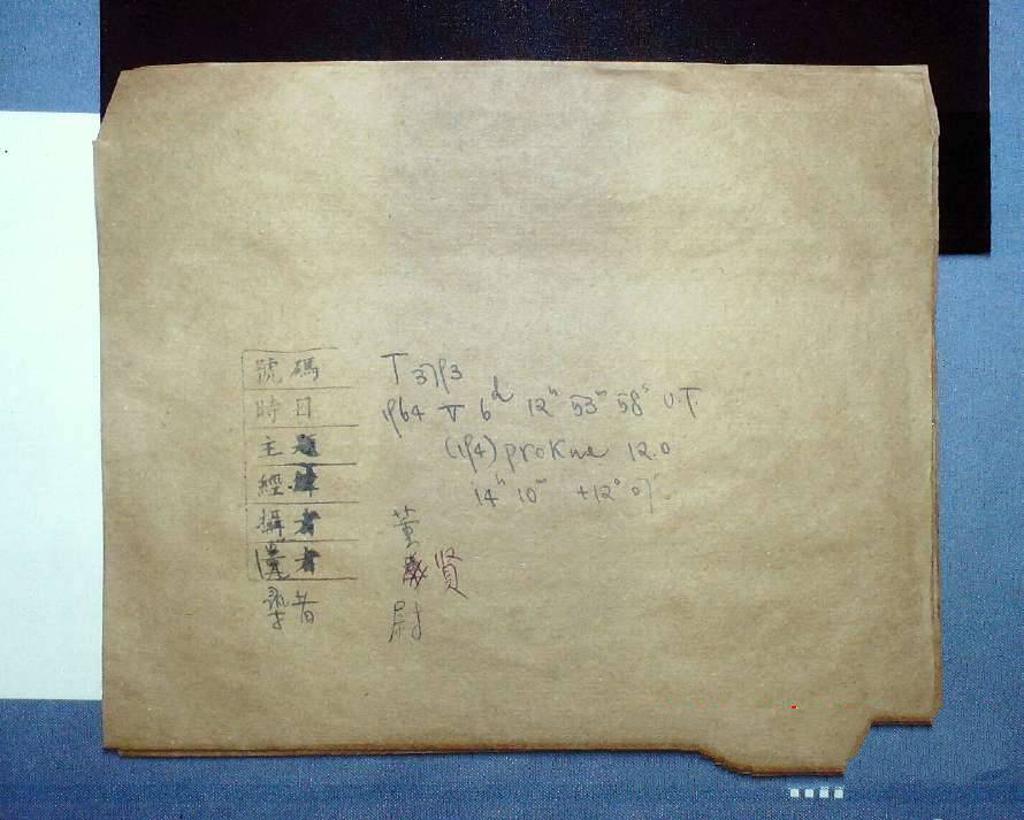 號碼 T 3793
時日 1964 V 6ᵈ 12ʰ 53ᵐ 58ˢ U.T.
主 (194) proKne 12.0
經 14ʰ 10ᵐ +12° 07'
攝者 董
者 贤
者 尉